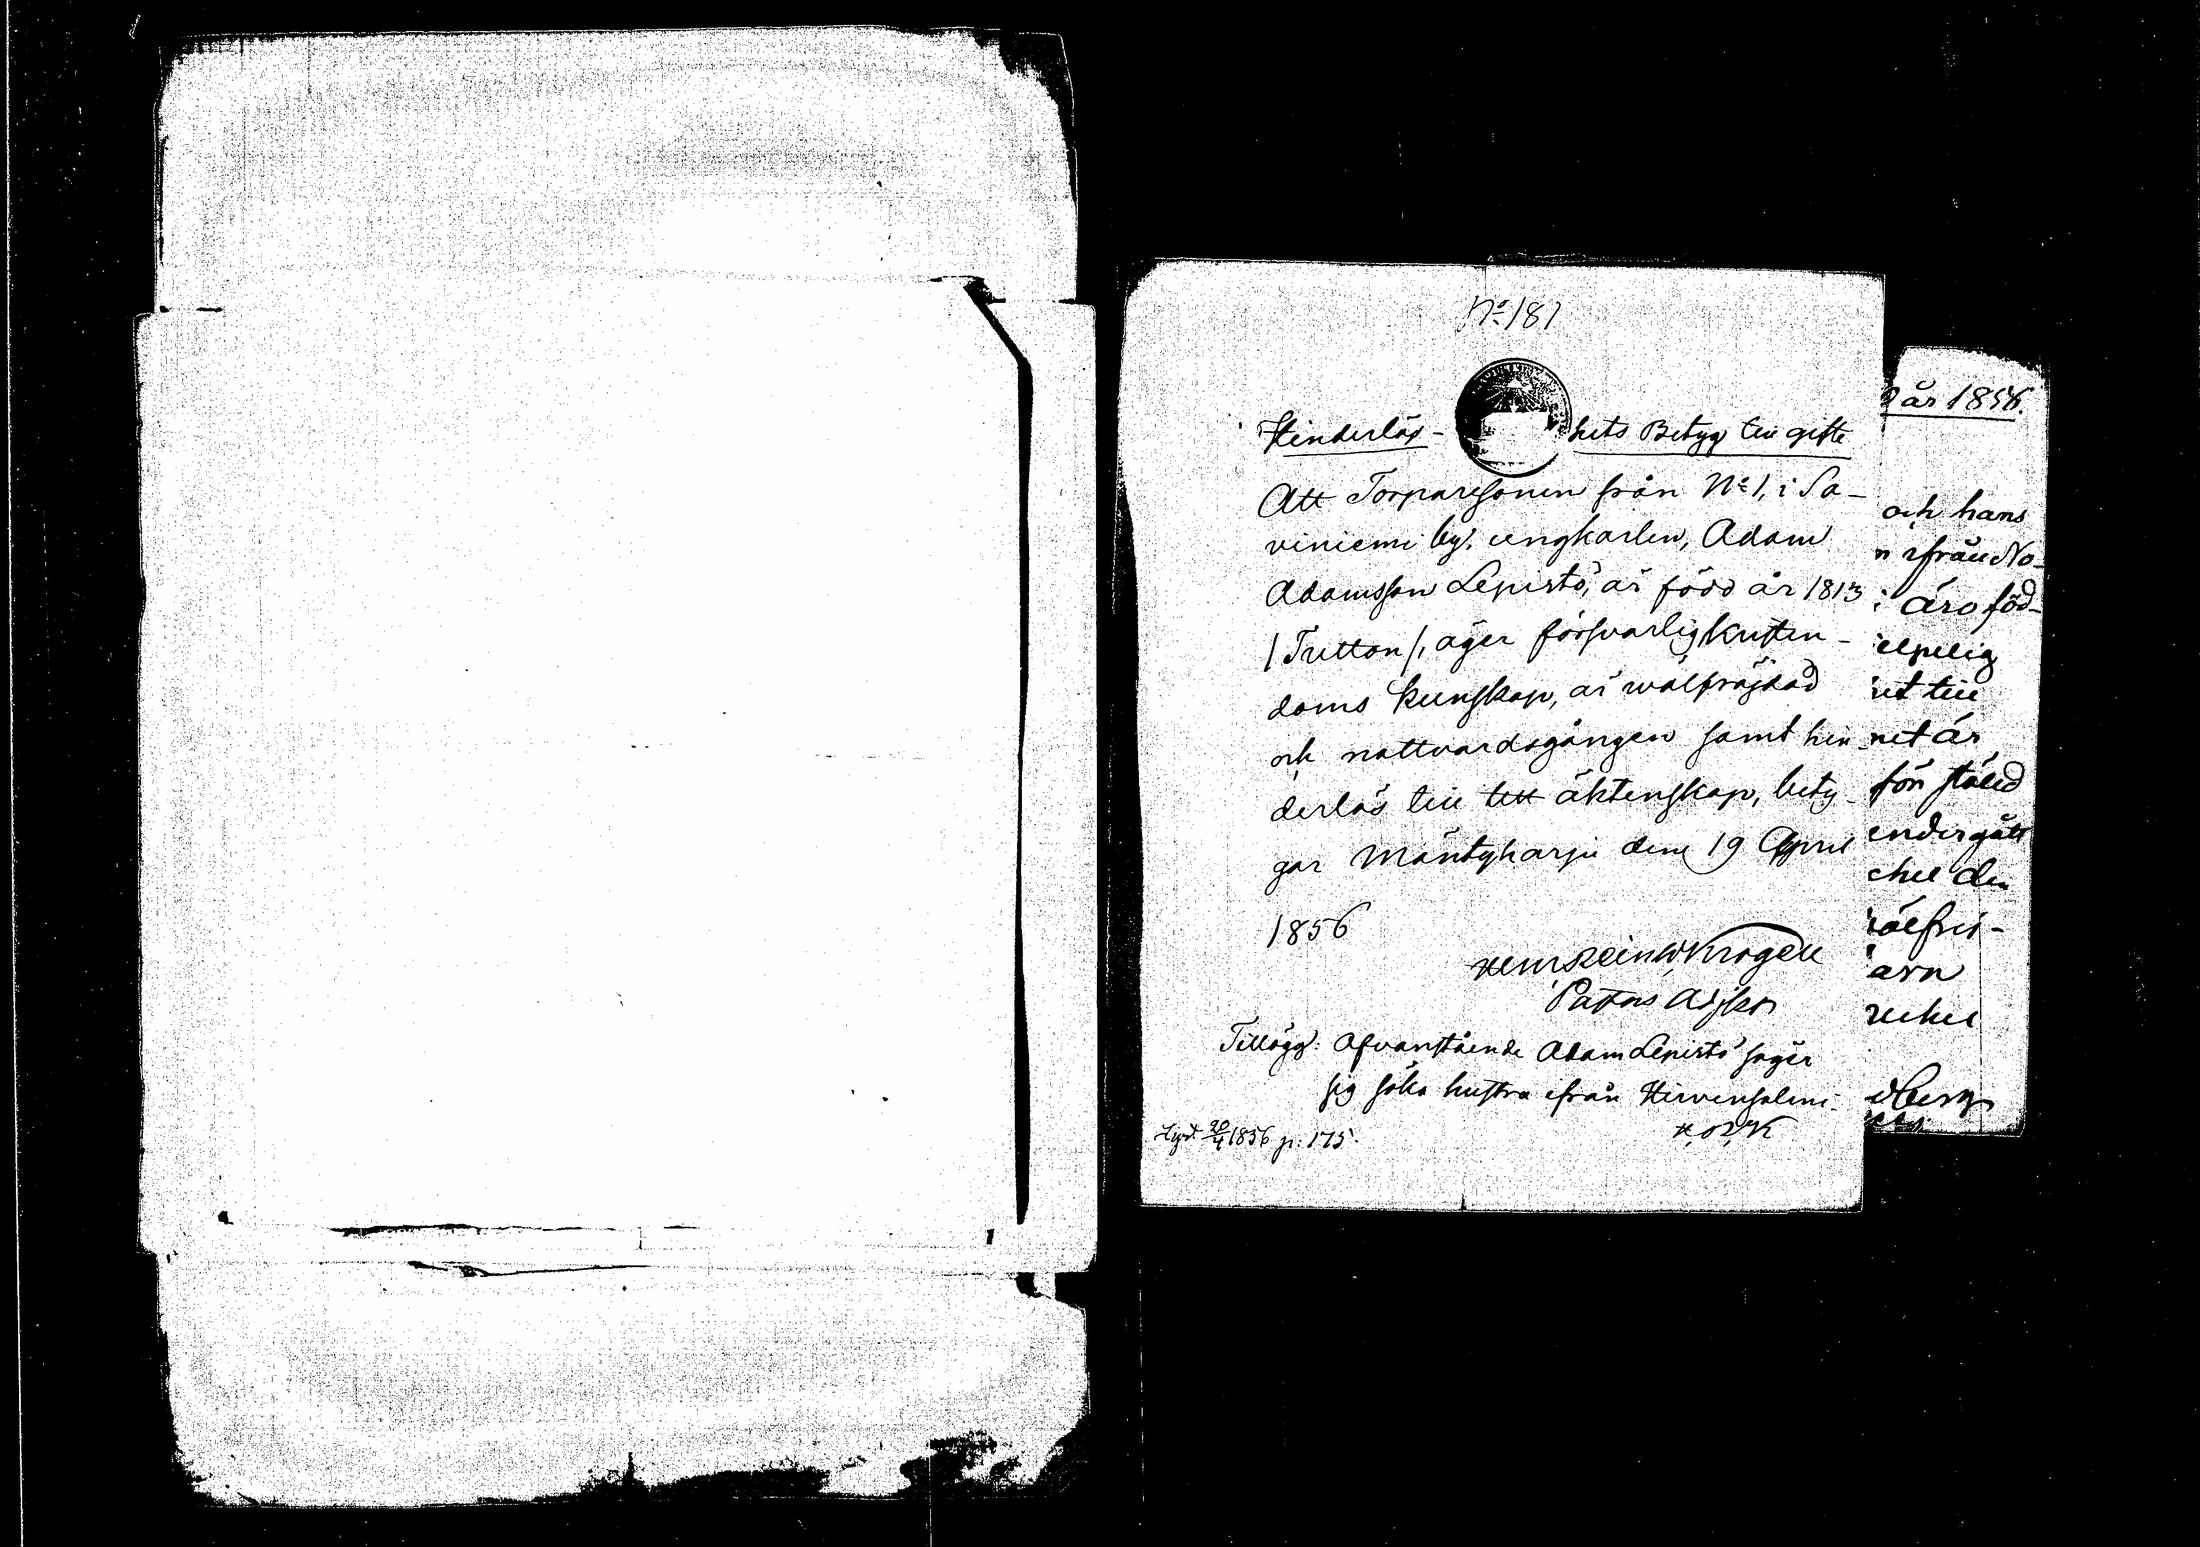 No 181
Hinderlös- hets Betyg till gifte
Att Torparesonen från No 1, i Sa-
viniemi by, ungkarlen, Adam
Adamsson Lepistö, är född år 1813
/Tretton/, äger försvarlig Kristen-
doms kunskap, är wälfräjdad
och nattvardsgången samt hin-
derlös till äktenskap, bety-
gar Mäntyharju den 19 April
1856
Krogell
Pastors Adj
Tillägg: Ofvanstående Adam Lepistö säger
sig söka hustru ifrån Hirvensalmi.
Lyst 20/4 1856 p. 175.
år 1856.
och hans
ifrån No
äro föd-
till
net är
för stånd
undergått
den